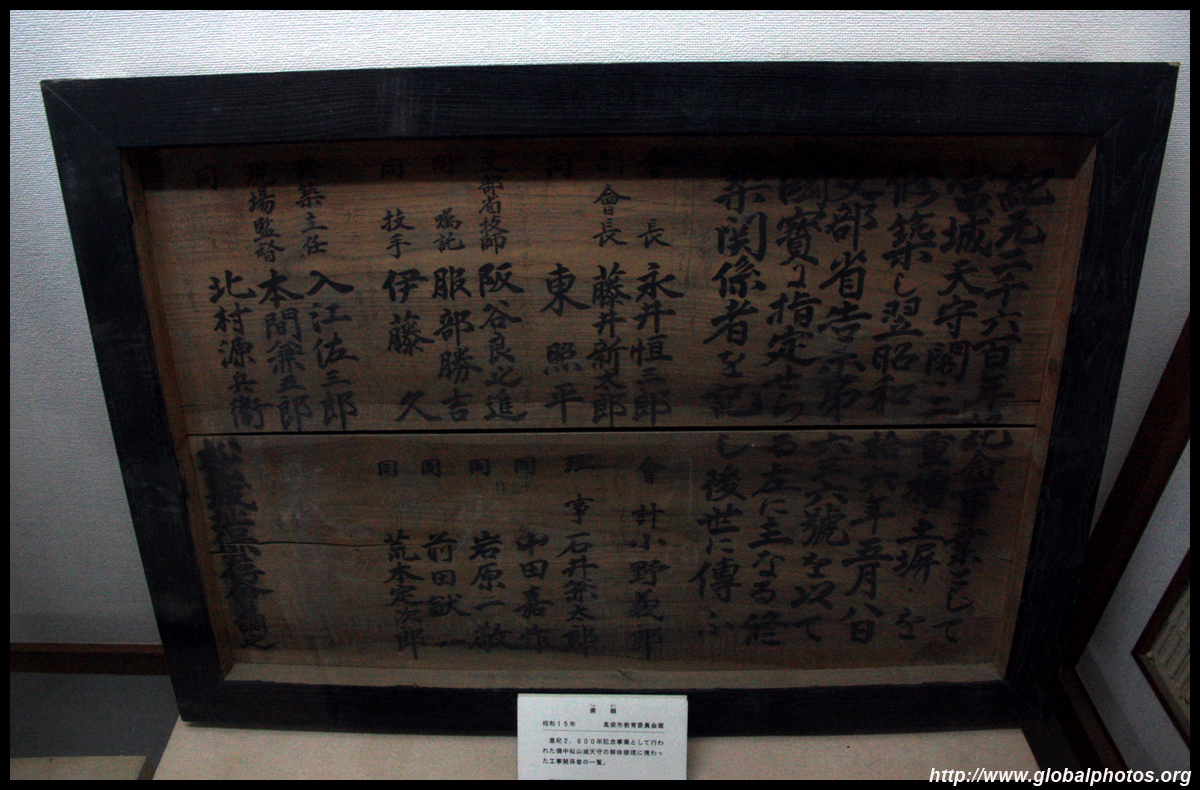 紀元二千六百年に記念事業として
宮城天守閣二重櫓土塀を
修築し翌昭和拾六年五月八日
文部省告示第六三六號を以て
國寳に指定せらる左に主なる修
築関係者を記し後世に傳ふ
會長 永井恒三郎
副會長 藤井新太郎
同 東照平
文部省技師 阪谷良之進
同 嘱託 服部勝吉
同 技手 伊藤久
修築主任 入江佐三郎
現場監督 本間兼五郎
同 北村源兵衛
會計 小野義郎
理事 石井太郎
同 中田嘉作
同 岩原一敬
同 前田獣一
同 荒木定次郎
昭和15年 高梁市教育委員会蔵
皇紀2,600年記念事業として行わ
れた備中松山城天守の解体修理に携わっ
た工事関係者の一覧。
http://www.globalphotos.org